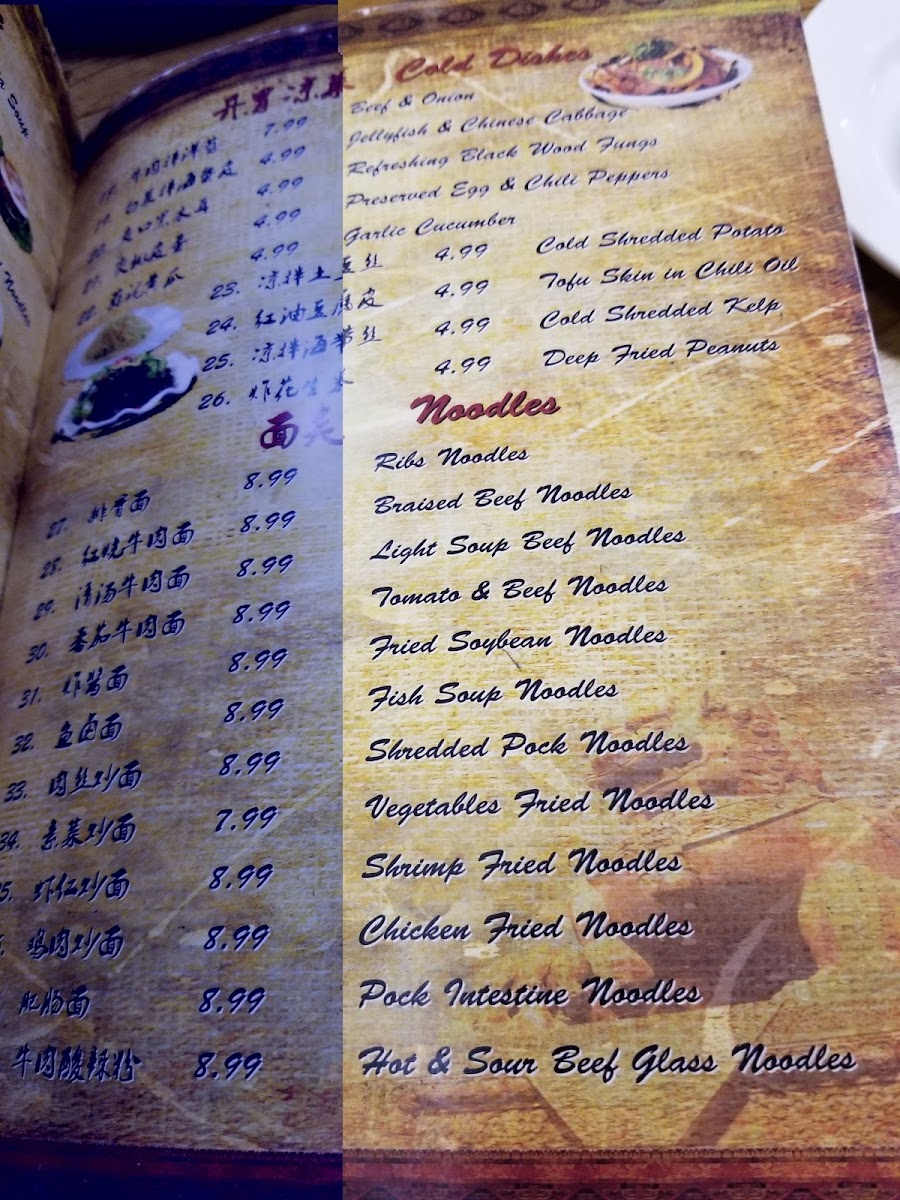 Soup
Noodles
丹东凉菜 Cold Dishes
18. 牛肉拌洋葱 7.99 Beef & Onion
19. 白菜拌海蜇皮 4.99 Jellyfish & Chinese Cabbage
20. 爽口黑木耳 4.99 Refreshing Black Wood Fungs
21. 尖椒皮蛋 4.99 Preserved Egg & Chili Peppers
22. 蒜泥黄瓜 4.99 Garlic Cucumber
23. 凉拌土豆丝 4.99 Cold Shredded Potato
24. 红油豆腐皮 4.99 Tofu Skin in Chili Oil
25. 凉拌海带丝 4.99 Cold Shredded Kelp
26. 炸花生 4.99 Deep Fried Peanuts
面类 Noodles
27. 排骨面 8.99 Ribs Noodles
28. 红烧牛肉面 8.99 Braised Beef Noodles
29. 清汤牛肉面 8.99 Light Soup Beef Noodles
30. 番茄牛肉面 8.99 Tomato & Beef Noodles
31. 炸酱面 8.99 Fried Soybean Noodles
32. 鱼卤面 8.99 Fish Soup Noodles
33. 肉丝炒面 8.99 Shredded Pock Noodles
34. 素菜炒面 7.99 Vegetables Fried Noodles
5. 虾仁炒面 8.99 Shrimp Fried Noodles
鸡肉炒面 8.99 Chicken Fried Noodles
肥肠面 8.99 Pock Intestine Noodles
牛肉酸辣粉 8.99 Hot & Sour Beef Glass Noodles